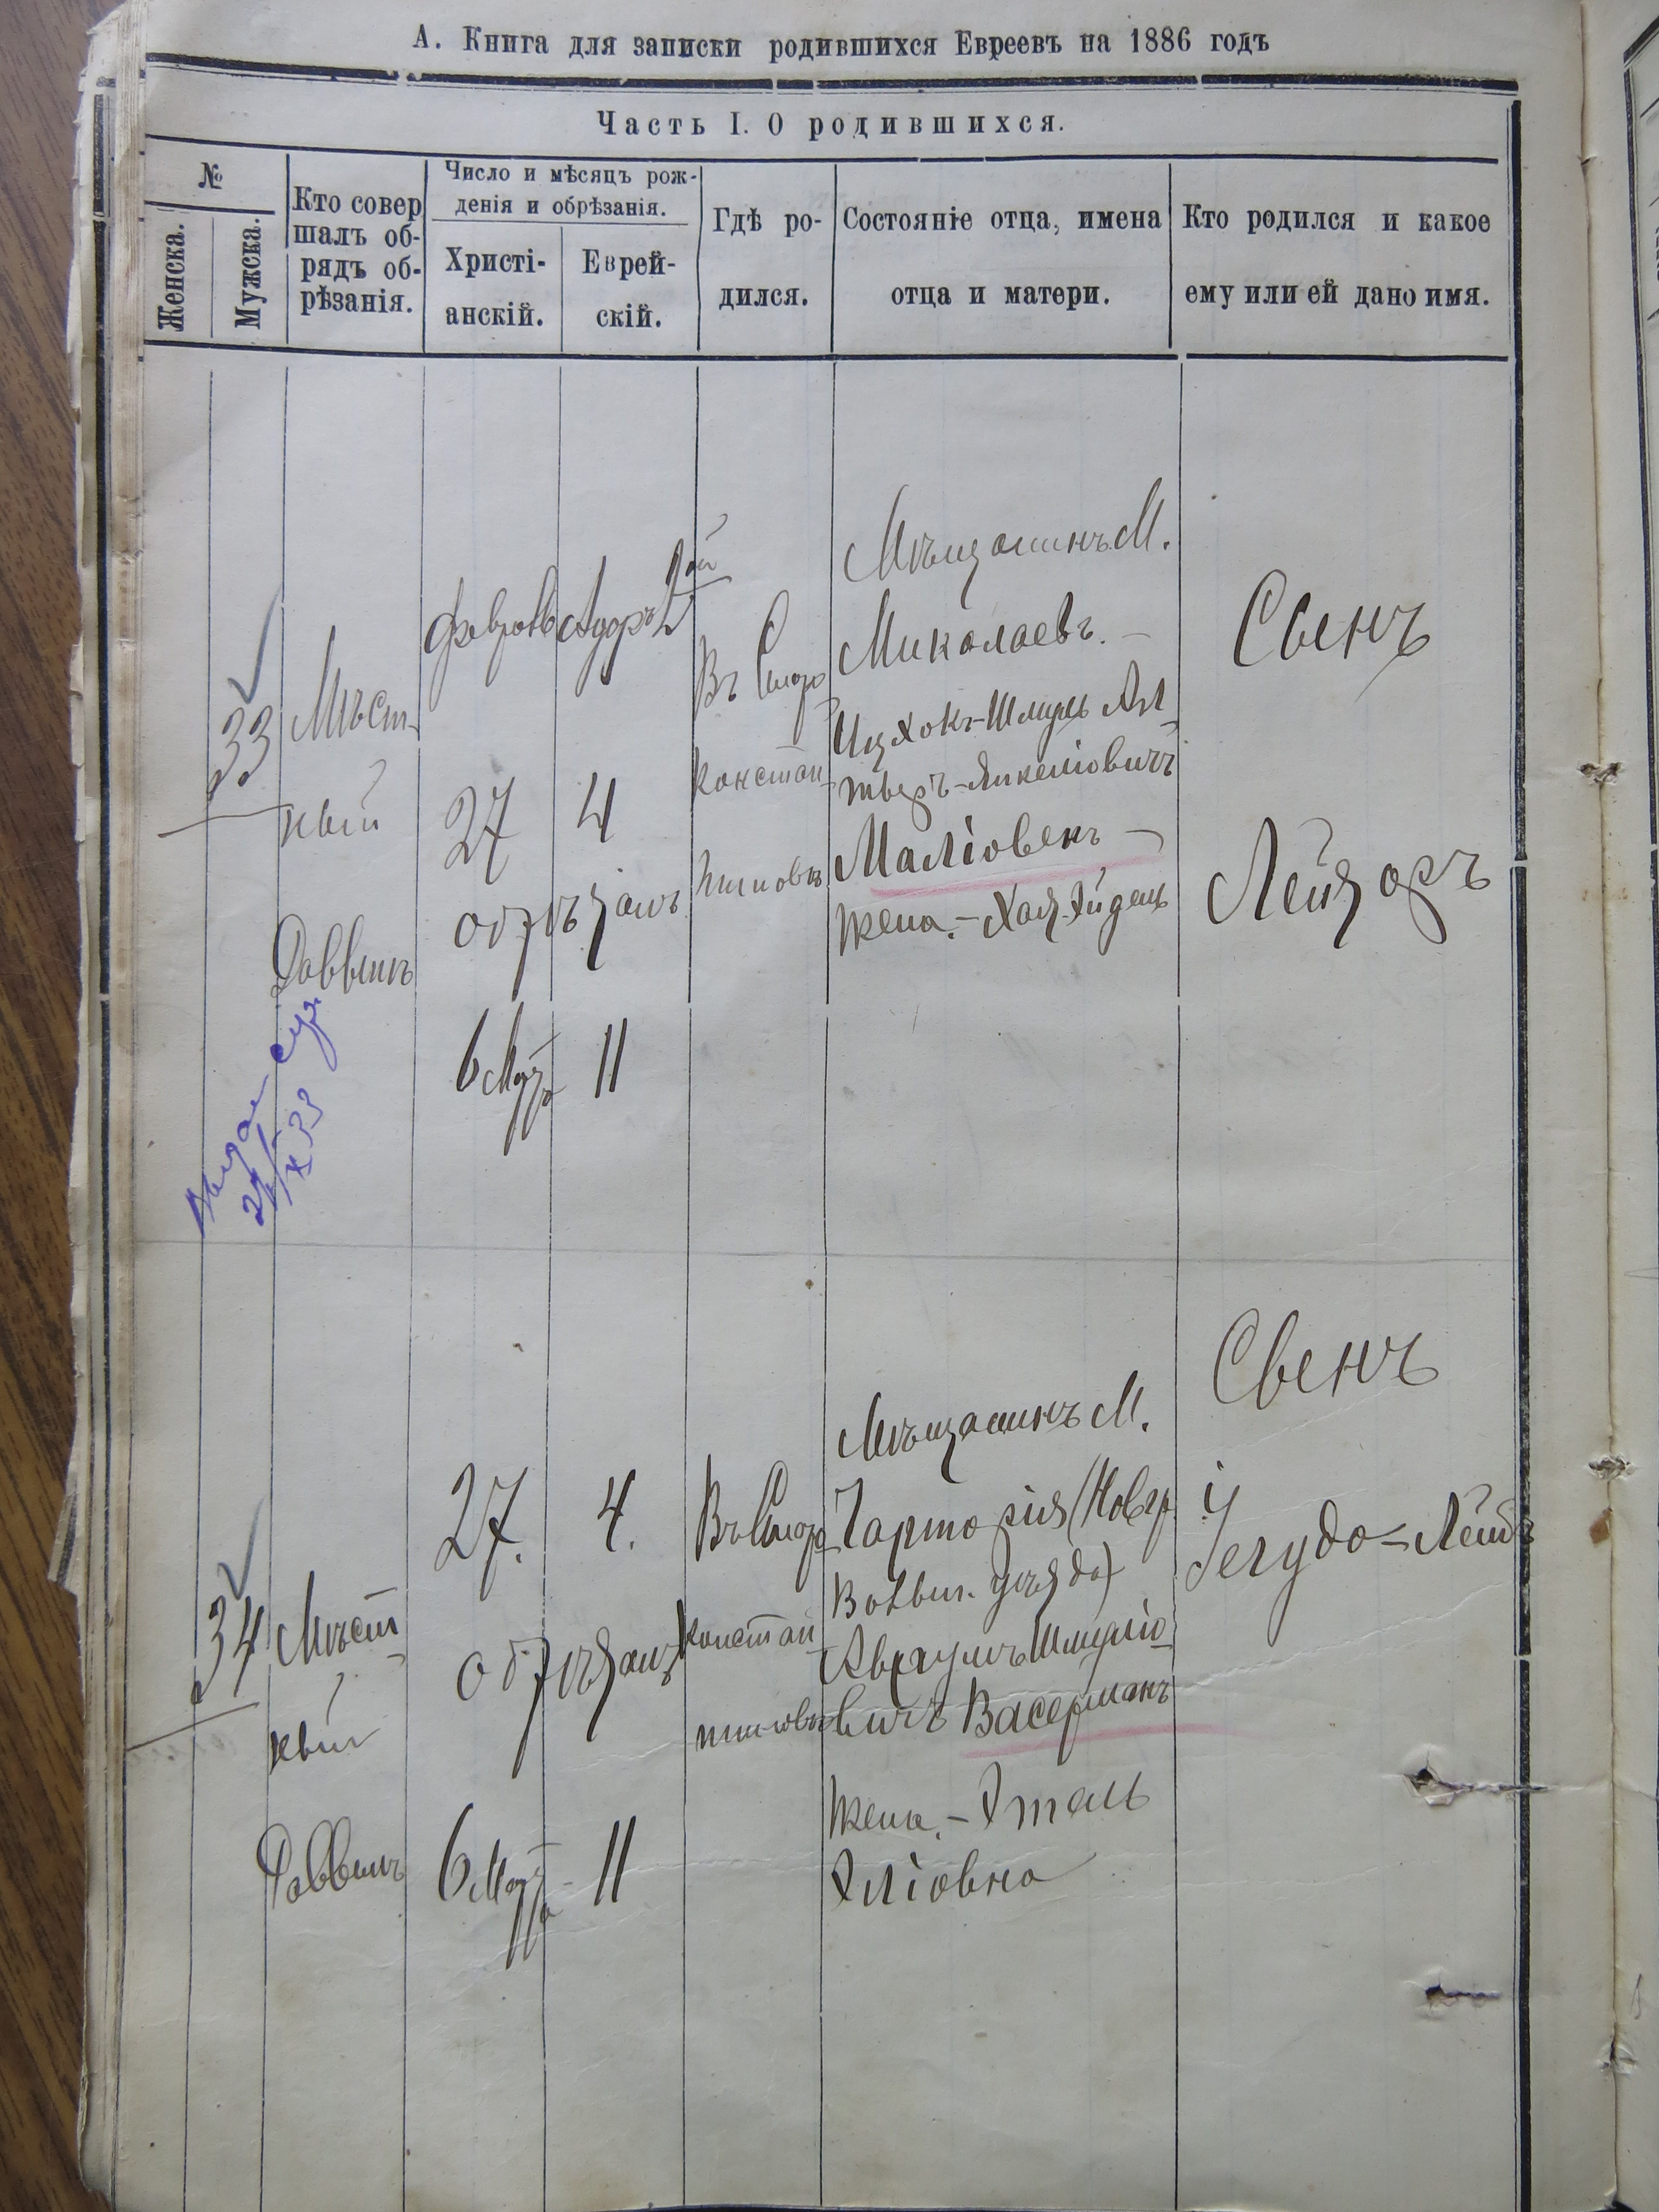 А. Книга для записки родившихся Евреевъ на 1886 годъ
Часть I. О родившихся.
№
Женска.
Мужска.
Кто совер
шалъ об-
рядъ об-
рѣзанія.
Число и мѣсяцъ рож-
денія и обрѣзанія.
Христі-
анскій.
Еврей-
скій.
Гдѣ ро-
дился.
Состояніе отца, имена
отца и матери.
Кто родился и какое
ему или ей дано имя.
33
Мѣст-
ный
Раввинъ
27
обрѣзанъ
6 Марта
Адаръ 2й
4
11
Въ Старо
констан-
тиновѣ
Мѣщанинъ М.
Миколаевъ. —
Ицхокъ-Шмуль Ал-
Маліовенъ —
Жена. — Хая-Эйдель
Сынъ
Лейзоръ
34
Мѣст-
ный
Раввинъ
27.
обрѣзанъ
6 Марта
4.
11
Въ Старо
констан-
тиновѣ
Мѣщанинъ М.
Чарторія (Новгр.
Волын. уѣзда)
Аврумъ Шмуліо-
вичъ Васерманъ
Жена. — Этель
Эліовна
Сынъ
Іегудо-Лейбъ